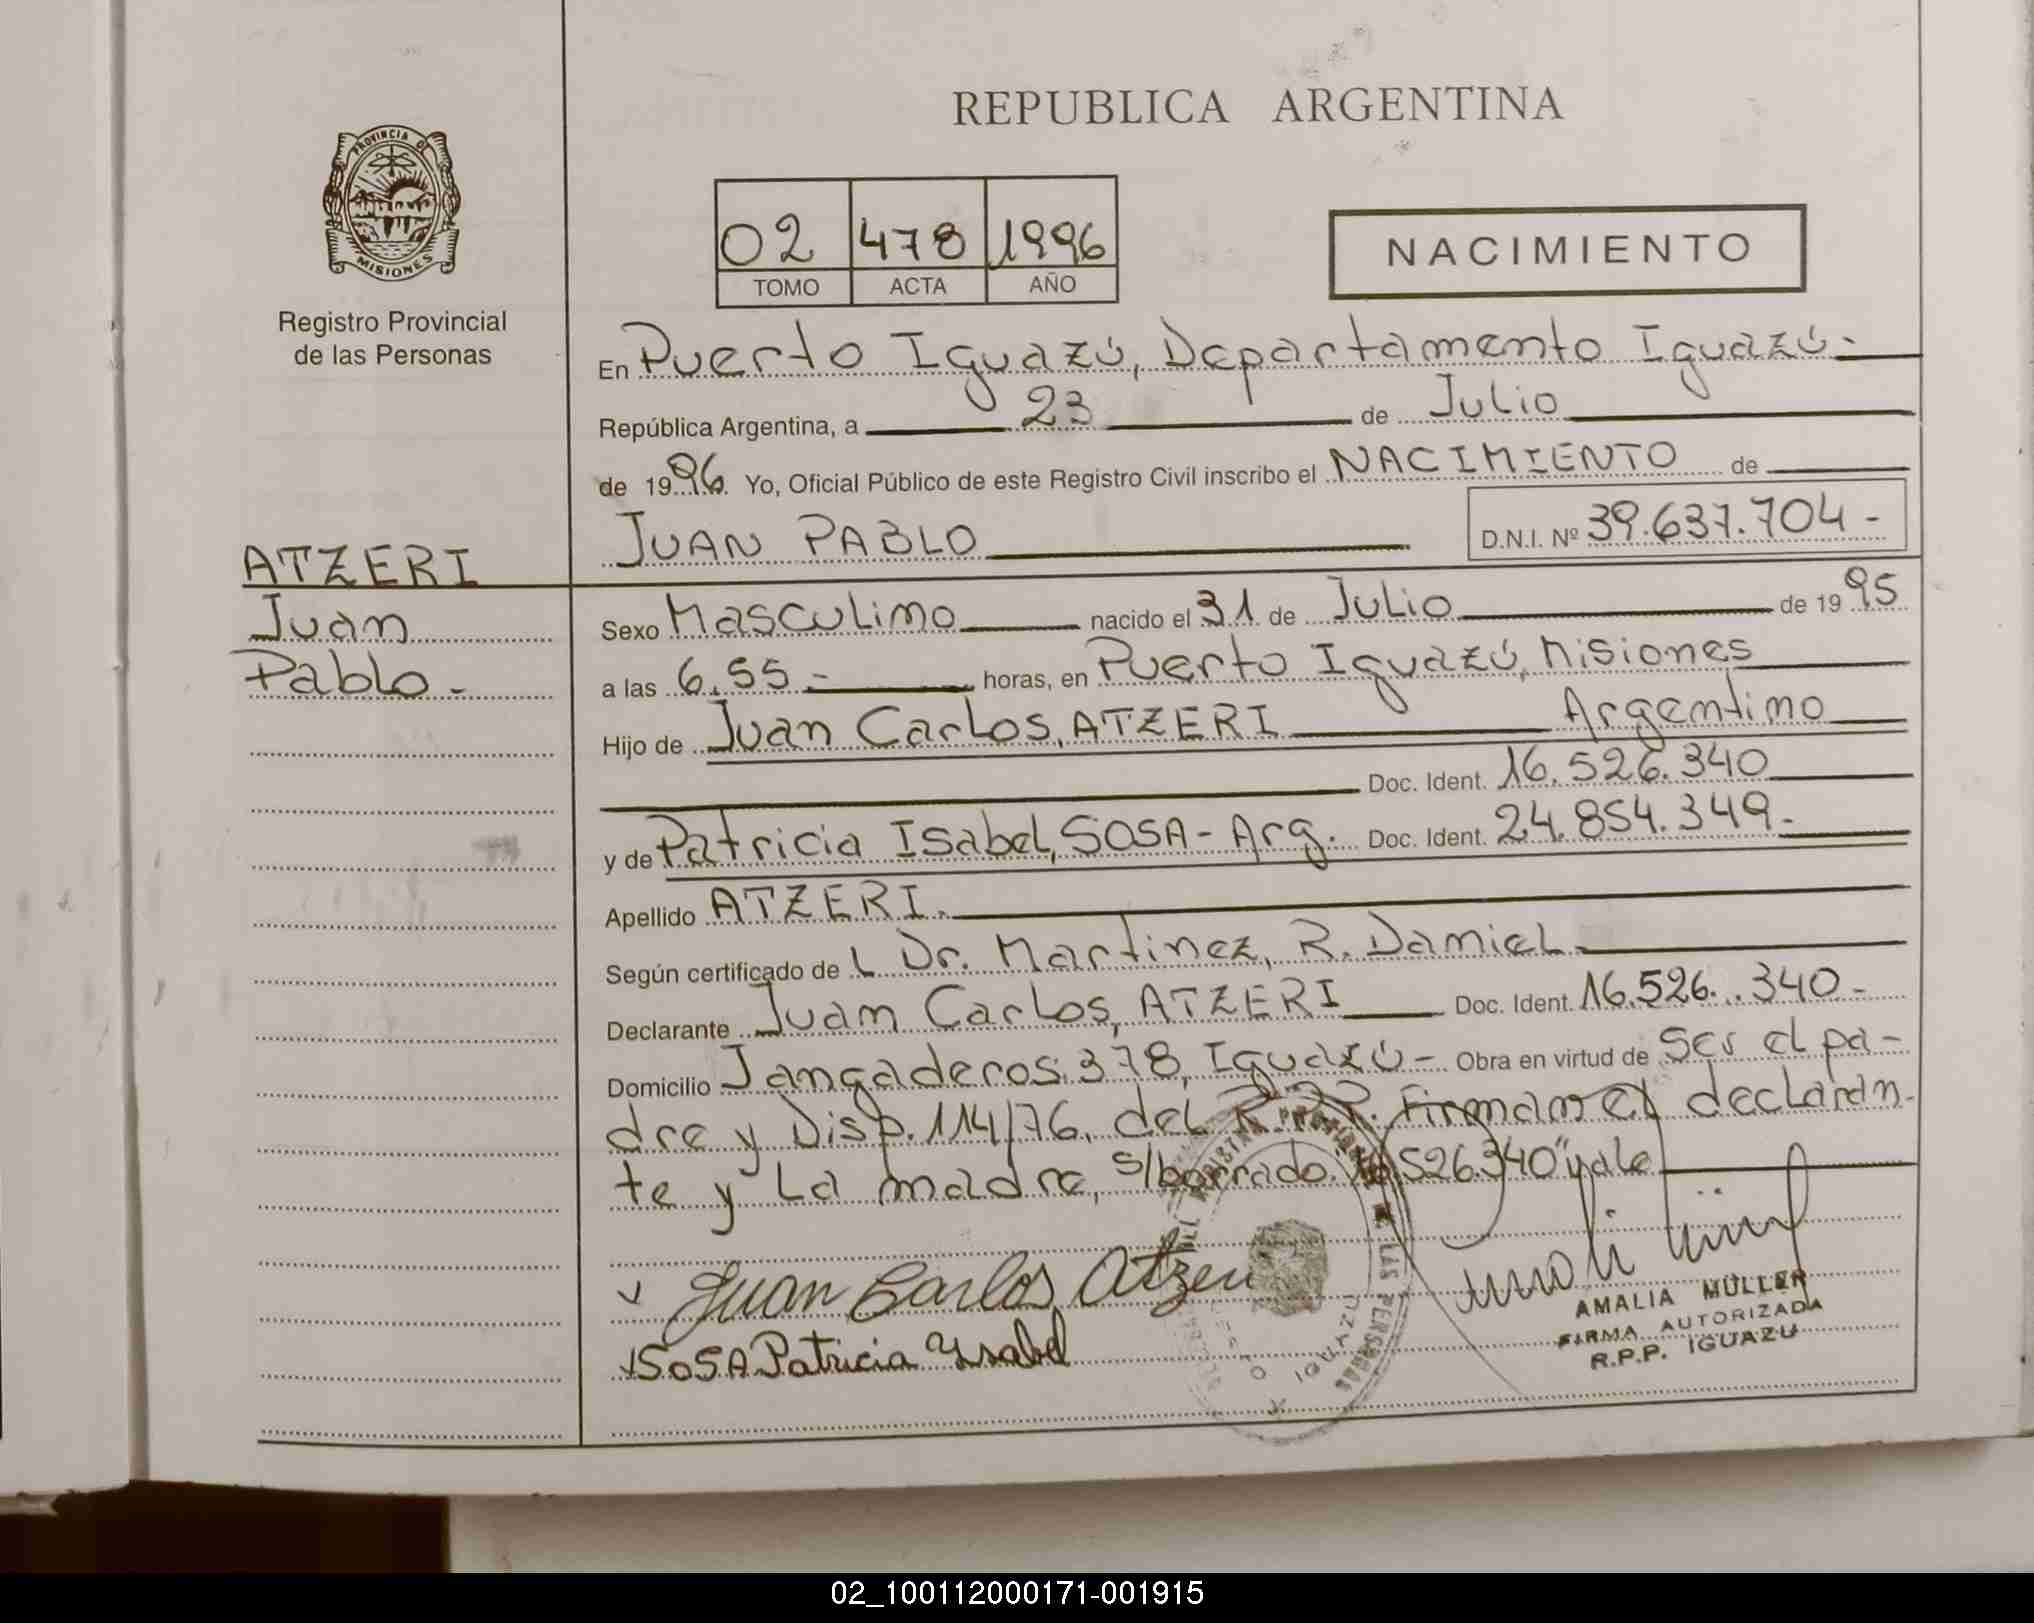 REPUBLICA ARGENTINA
PROVINCIA DE
MISIONES
Registro Provincial
de las Personas
02 478 1996
TOMO ACTA AÑO
NACIMIENTO
En Puerto Iguazú, Departamento Iguazú.-
República Argentina, a 23 de Julio
de 1996. Yo, Oficial Público de este Registro Civil inscribo el NACIMIENTO de
JUAN PABLO D.N.I. Nº 39.637.704-
ATZERI
Juan
Pablo.-
Sexo Masculino nacido el 31 de Julio de 1995
a las 6.55.- horas, en Puerto Iguazú, Misiones
Hijo de Juan Carlos, ATZERI Argentino
Doc. Ident. 16.526.340
y de Patricia Isabel, SOSA - Arg. Doc. Ident. 24.854.349.-
Apellido ATZERI.
Según certificado de L Dr. Martinez, R. Daniel
Declarante Juan Carlos, ATZERI Doc. Ident. 16.526..340-
Domicilio Jangaderos 378, Iguazú- Obra en virtud de Ser el pa-
dre y Disp. 114/76, del R.P.P. Firman el declaran-
te y La madre, s/borrado: "16.526.340" vale
Juan Carlos Atzeri
SOSA Patricia Ysabel
AMALIA MULLER
FIRMA AUTORIZADA
R.P.P. IGUAZU
LAS PERSONAS
IGUAZU
02_100112000171-001915